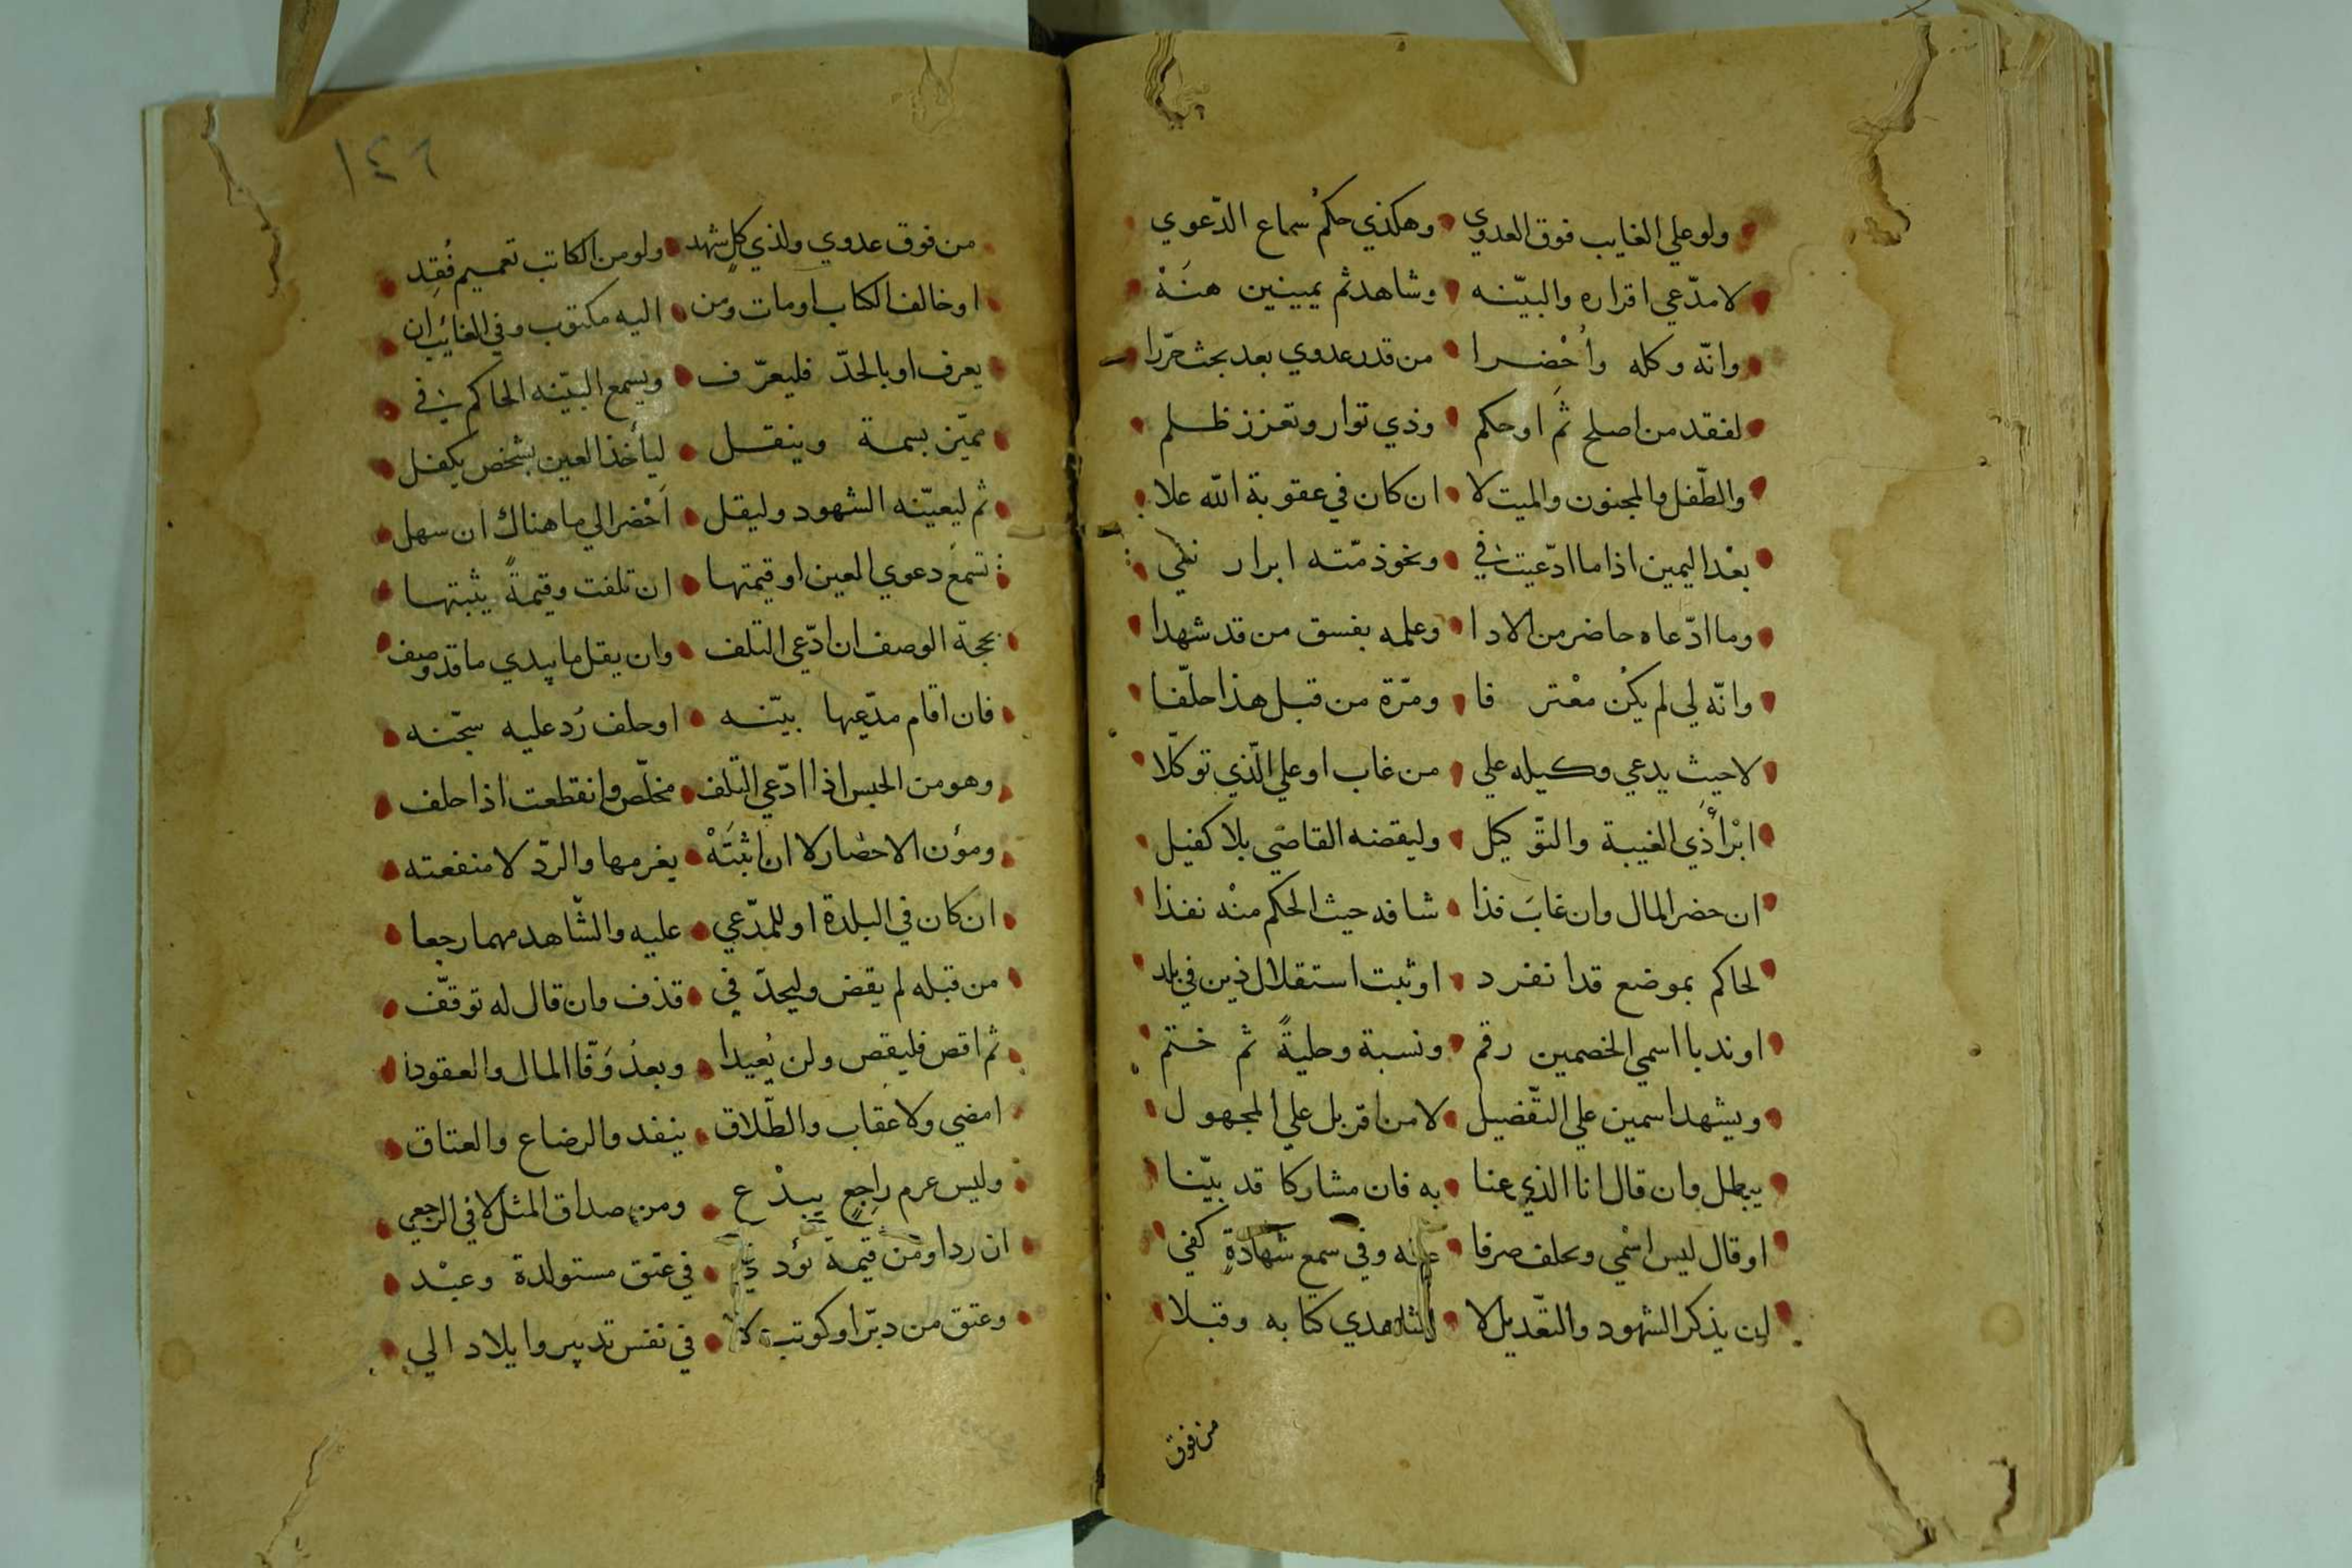 ولو علي الغايب فوق العدوي وهكذي حكم سماع الدّعوي
لا مدّعي اقراره والبيّنه وشاهد ثم يمينين هنَهْ
وانّه وكله وأُحْضرا من قدر عدوي بعد بحث حرّرا
لفقد من اصلح ثَم او حكم وذي توار وتعزز ظلم
والطّفل والمجنون والميت لا ان كان في عقوبة الله علا
بعْد اليمين اذا ما ادّعيت في ونحو ذمّته ابرار نفي
وما ادّعاه حاضر من الادا وعلمه بفسق من قد شهدا
وانّه لي لم يكُن معْترفا ومرّة من قبل هذا حلّفا
لا حيث يدعي وكيله علي من غاب او علي الّذي توكّلا
ابْرأ ذَي الغيبة والتّوكيل وليقضه القاضي بلا كفيل
ان حضر المال وان غابَ فذا شافه حيث الحكم منْه نفذا
لحاكم بموضع قد انفرد او ثبت استقلال ذين في بلد
او ندبا اسمي الخصمين رقم ونسبة وحليةً ثم ختم
ويشهد اسمين علي التّفضيل لا من اقر بل علي المجهول
يبطل وان قال انا الذي عنا به فان مشاركا قد بيّنا
او قال ليس اسْمي وحلف صرفا عنه وفي سمع شهادةٍ كفي
لن يذكر الشهود والتّعديل لا لشاهدي كتابه وقبلا
من فوق
١٤٦
من فوق عدوي ولذي كلٍ شهد ولو من الكاتب تعميم فُقِد
او خالف الكتاب او مات ومن اليه مكتوب وفي الغائب ان
يعرف او بالحدّ فليعرّف ويسمع البيّنه الحاكم في
مميّز بسمة وينقل ليأخذ العين بشخص يكفل
ثم ليعيّنه الشهود وليقل اَحْضر الي ما هناك ان سهل
تسمعُ دعوي العين او قيمتها ان تلفت وقيمةً يثبتها
بحجة الوصف ان ادّعي التلف وان يقل ما بيدي ما قد وصف
فان اقام مدّعيها بيّنه او حلف رُد عليه سجّنه
وهو من الحبس اذا ادّعي التلف مخلّص وانقطعت اذا حلف
ومؤن الاحضار لا ان اثبتَهْ يغرمها والردّ لا منفعته
ان كان في البلدة او للمدّعي عليه والشّاهد مهما رجعا
من قبله لم يقض وليحدّ في قذف وان قال له توقّف
ثم اقض فليقض ولن يُعيدا وبعدُ وَفّا المال والعقودا
امضي ولا عقاب والطّلاق ينفد والرضاع والعتاق
وليس غرم راجِعٍ يبدْع ومن صداق المثل لا في الرجعي
ان رد او من قيمة تؤد في عتق مستولدة وعبْد
وعتق من دبّر او كوتب لا في نفس تدبير وايلاد الي